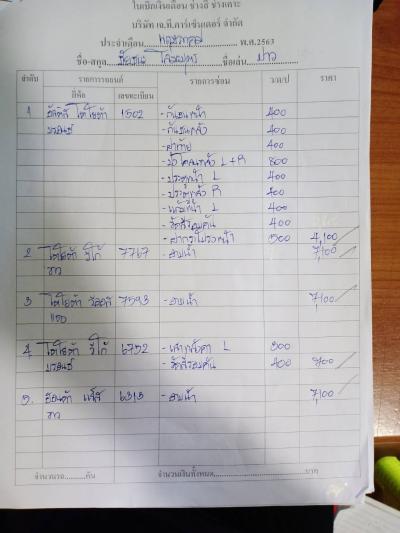 ใบเบิกเงินเดือน ช่างสี ช่างเคาะ
บริษัท เจ.ที.คาร์เซ็นเตอร์ จำกัด
ประจำเดือน พฤษภาคม พ.ศ.2563
ชื่อ-สกุล ชื่อเล่น ขาว
ลำดับ รายการรถยนต์ รายการซ่อม ว/ด/ป ราคา
ยี่ห้อ เลขทะเบียน
1 โตโยต้า 1502 - กันชนหน้า 400
บรอนซ์ - กันชนหลัง 400
- ฝาท้าย 400
- บังโคลนหลัง L + R 800
- ประตูหน้า L 400
- ประตูหลัง R 400
- แก้มหน้า L 400
- ขัดสีรอบคัน 400
- ฝากระโปรงหน้า 500 4,100
2 โตโยต้า วีโก้ 7767 - อบน้ำ 7,100
ขาว
3 โตโยต้า 7593 - อบน้ำ 7,100
แดง
4 โตโยต้า วีโก้ 6752 - L 500
บรอนซ์ - ขัดสีรอบคัน 400 900
5. ฮอนด้า แจ๊ส 6313 - อบน้ำ 7,100
ขาว
จำนวนรถ คัน จำนวนเงินทั้งหมด บาท